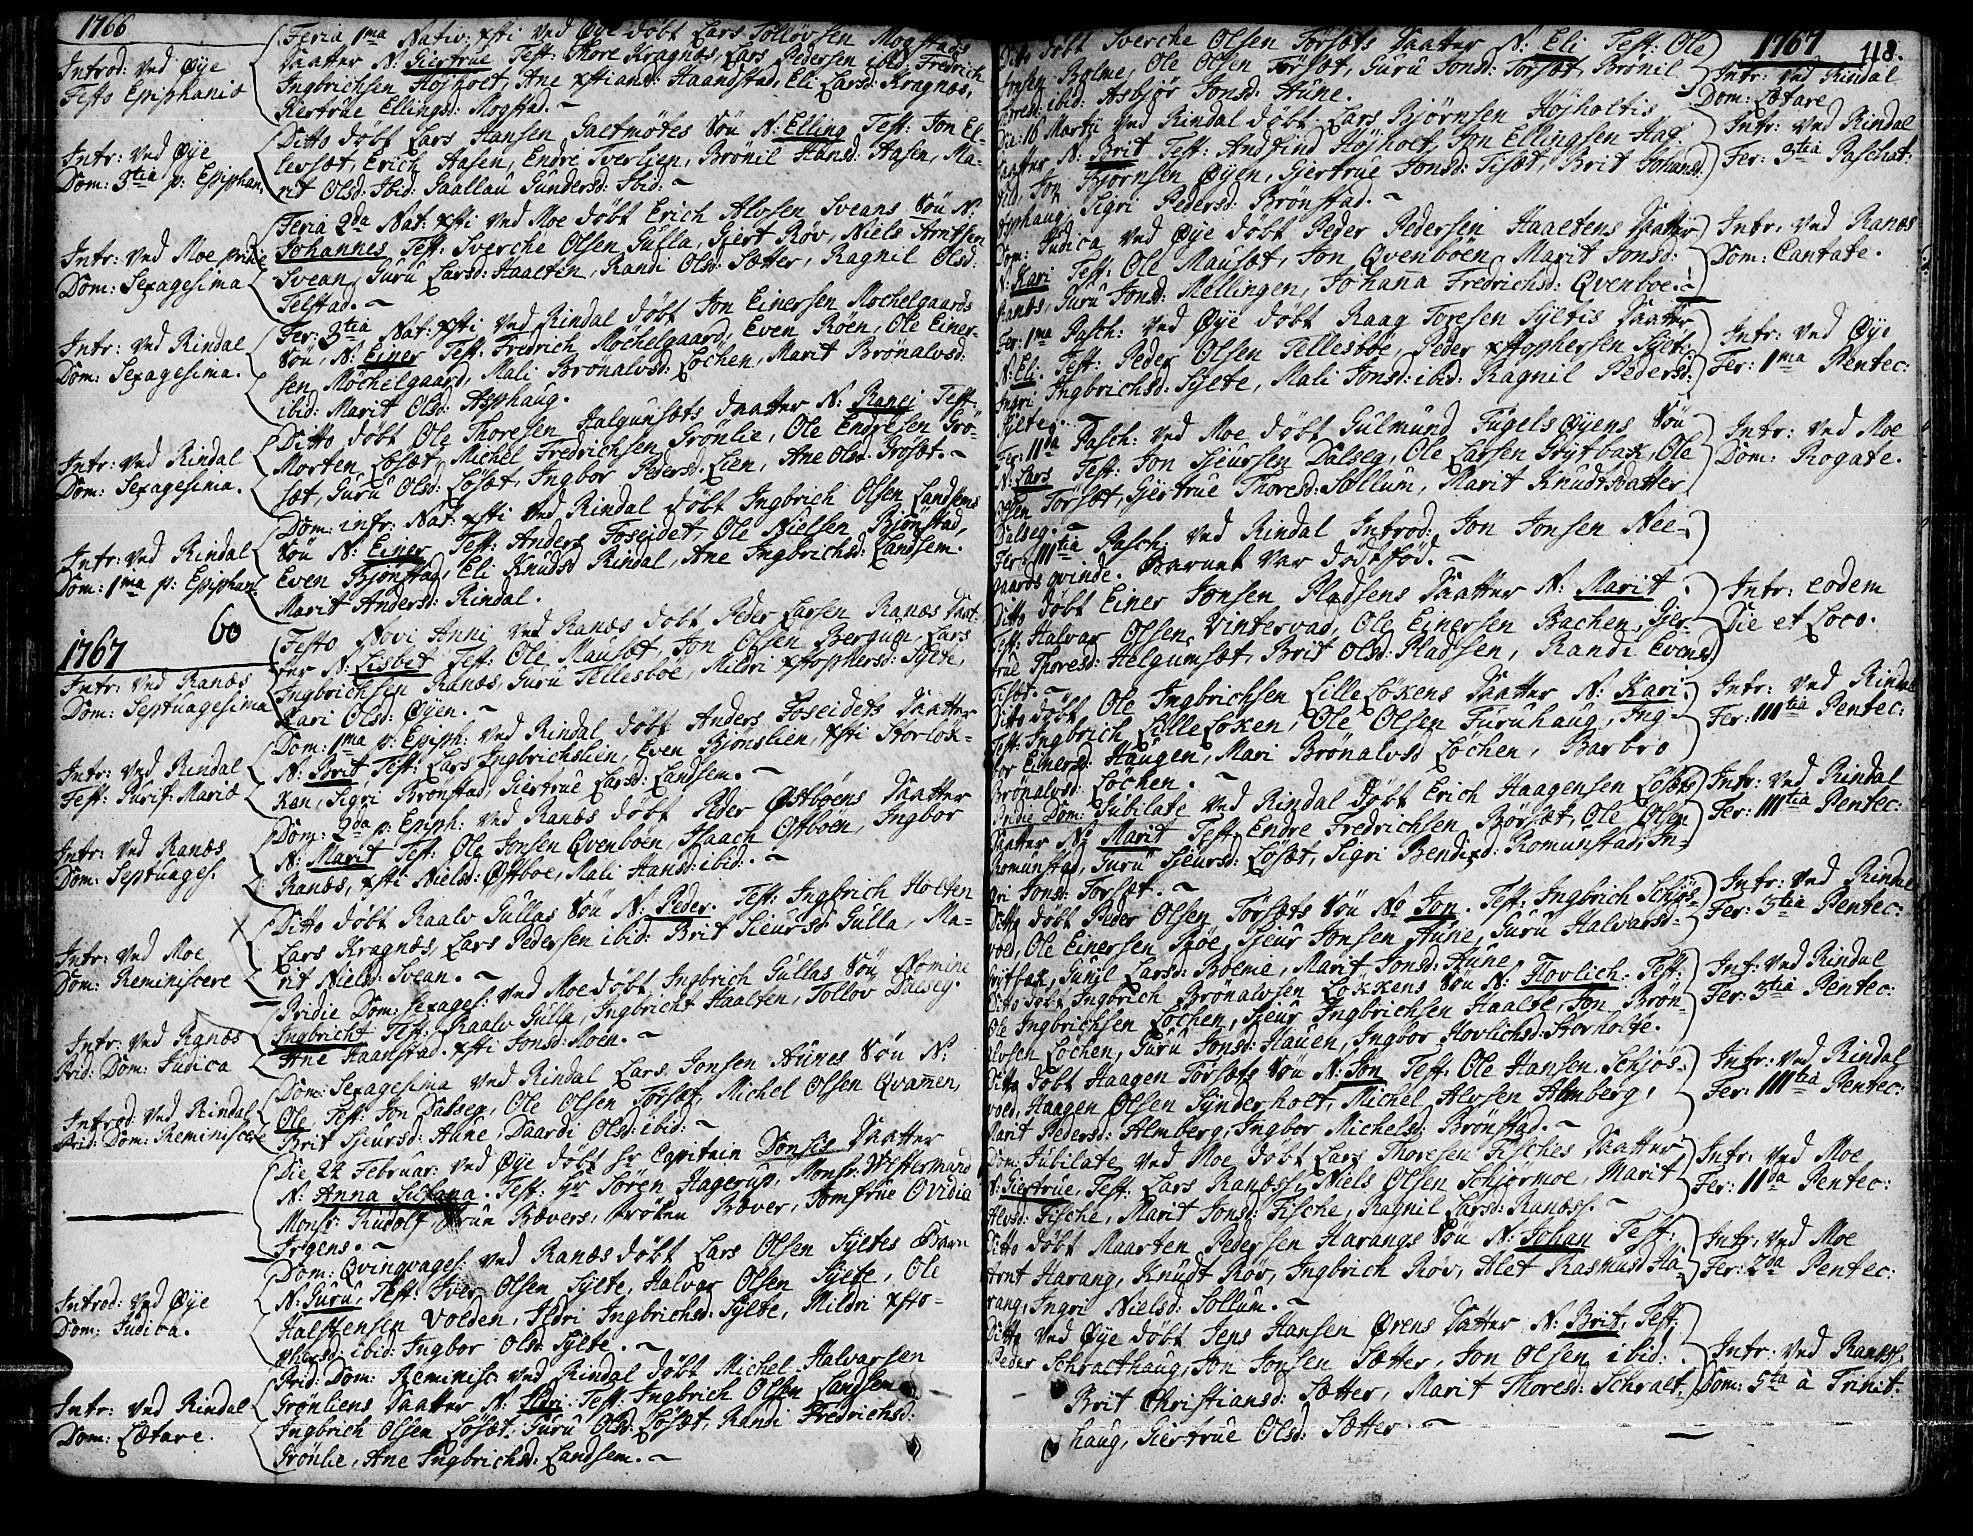 1766
Introd: ved Øye
Festo Epiphaniæ
Feria 1ma Nativ: Xsti ved Øye döbt Lars Tolløvsen Mogstads
Daatter N: Giertrue Test: Thore Kragnæs, Lars Pedersen ibid, Fredrich
Ingbrichsen Höjholt, Ane Xstiansd: Haanstad, Eli Larsd: Kragnæs,
Giertrue Ellingsd: Mogstad. ~
Intr: ved Øye
Dom: 3tia p: Epiphan:
Ditto döbt Lars Hansen Saltmötes Sön N: Elling Test: Jon El-
levsæt, Erich Aasen, Endre Tverlien, Brönil Hansd: Aasen, Ma-
rit Olsd: Ibid: Gaallau Gundersd: Ibid: ~
Intr: ved Moe pridie
Dom: Sexagesima
Feria 2da Nat: Xsti ved Moe döbt Erich Alvsen Sveans Sön N:
Johannes Test: Sverche Olsen Gulla, Giert Röv, Niels Arntsen
Svean, Guru Larsd: Haalten, Randi Olsd: Sætter, Ragnil Olsd:
Telstad. ~
Intr: ved Rindal
Dom: Sexagesima.
Fer: 3tia Nat: Xsti ved Rindal döbt Jon Einersen Mochelgaards
Sön, N: Einer Test: Fredrich Möchelgaard, Even Röen, Ole Einer-
sen Möchelgaard, Mali Brönalvsd: Löchen, Marit Brönalvsd:
ibid: Marit Olsd: Asphaug.
Intr: ved Rindal
Dom: Sexagesima.
Ditto döbt Ole Thoresen Halgunsæts Daatter N: Ranei Test:
Morten Lösæt, Michel Fredrichsen Grönlie, Ole Endresen Grö-
sæt, Guru Olsd: Lösæt, Ingbor Pedersd: Lien, Ane Olsd: Grösæt. ~
Intr: ved Rindal
Dom: 1ma p: Epiphan:
Dom: infr: Nat: Xsti ved Rindal döbt Ingbrich Olsen Landsems
Sön N: Einer, Test: Anders Foseidet, Ole Nielsen Björnstad,
Even Björnstad, Eli Knudsd Rindal, Ane Ingbrichsd: Landsem.
Marit Andersd: Rindal.
60
1767
Intr: ved Ranæs
Dom: Septuagesima
Festo Novi Anni ved Ranæs döbt Peder Larsen Ranæs Daat-
ter N: Lisbet Test: Ole Mausæt, Jon Olsen Bergum, Lars
Ingbrichsen Ranæs, Guru Tellesboe, Mildri Xstophersd: Sylte,
Kari Olsd: Øyen. ~
Intr: ved Rindal
Fest: Purif: Mariæ
Dom: 1ma p: Epiph: ved Rindal döbt Anders Foseidets Daatter
N: Brit Test: Lars Ingbrichslien, Even Björnslien, Xsti Storlök-
ken, Sigri Brönstad, Giertrue Larsd: Landsem. ~
Intr: ved Ranæs
Dom: Septuages.
Dom: 2da p: Epiph: ved Ranæs döbt Peder Østböens Daatter
N: Marit Test: Ole Jonsen Qvenböen, Isaach Ostböen, Ingbor
Ranæs, Xsti Nielsd: Østboe, Mali Hansd: ibid: ~
Intr: ved Moe
Dom: Reminiscere
Ditto döbt Raalv Gullas Sön N: Peder. Test: Ingbrich Holten
Lars Kragnæs, Lars Pedersen ibid: Brit Sieursd: Gulla, Ma-
rit Nielsd: Svean. ~
Intr: ved Ranæs
Prid: Dom: Judica
Pridie Dom: Sexages: ved Moe döbt Ingbrich Gullas Sön, Nomine
Ingbricht Test: Raalv Gulla, Ingbricht Haalten, Tollov Dalseg.
Ane Haanstad. Xsti Jonsd: Moen. ~
Introd: ved Rindal
Prid: Dom: Reminiscere
Dom: Sexagesima ved Rindal Lars Jonsen Aunes Sön N:
Ole Test: Jon Dalseg, Ole Olsen Törsæt, Michel Olsen Qvamen,
Brit Sjeursd: Aune, Daardi Olsd: ibid: ~
Die 22 Februar: ved Øye döbt Hr Capitain Dons's Daatter
N: Anna Susana. Test: Hr Sören Hagerup, Monsr: Westermand
Monsr: Rudolf, Frue Bævers, Fröken Bæver, Jomfrue Ovidia
Irgens. ~
Introd: ved Øye
Dom: Judica.
Dom: Qvinqvages: ved Ranæs döbt Lars Olsen Syltes Barn
N: Guru, Test: Iver Olsen Sylte, Halvar Olsen Sylte, Ole
Halstensen Volden, Sidri Ingbrichsd: Sylte, Mildri Xsto-
phersd: ibid: Ingbor Olsd: Sylte. ~
Intr: ved Rindal
Dom: Lætare.
Prid: Dom: Reminisc: ved Rindal döbt Michel Halvarsen
Grönliens Daatter N: Sidri. Test: Ingbrich Olsen Landsem
Ingbrich Olsen Lösæt. Guru Olsd: Lösæt, Randi Fredrichsd:
Grönlie, Ane Ingbrichsd: Landsem. ~
1767
118.
Dito döbt Sverche Olsen Törsæts Daatter N: Eli Test: Ole
Jonsen Bolme, Ole Olsen Törsæt, Guru Jonsd: Torsæt, Brönil
Thoresd: ibid: Asbjör Jonsd: Aune.
Intr: ved Rindal
Dom: Lætare
Die 16 Martij ved Rindal döbt Lars Björnsen Höjholtis
Daatter N: Brit Test: Andfind Höjholt, Jon Ellingsen Hag
Jon Björnsen Øyen, Gjertrue Jonsd: Tisæt, Brit Johansd:
Asphaug, Sigri Pedersd: Brönstad. ~
Intr: ved Rindal
Fer: 3tia Paschat:
Dom: Judica ved Øye döbt Peder Pedersen Haaltens Daatter
N: Kari Test: Ole Mausæt, Jon Qvenböen, Marit Jonsd:
Ranæs, Guru Jonsd: Mellingen, Johanna Fredrichsd: Qvenboe. ~
Intr: ved Ranæs
Dom: Cantate.
Fer: 1ma Pasch: ved Øye döbt Raag Toresen Syltis Daatter
N: Eli. Test: Peder Olsen Tellesboe, Peder Xstophersen Sylte
Ingri Ingbrichsd: Sylte, Mali Jonsd: ibid: Ragnil Pedersd:
Sylte. ~
Intr: ved Øye
Fer: 1ma Pentec:
Fer: IIda Pasch: ved Moe döbt Gulmund Fugelsøyens Sön
N: Lars Test: Jon Sjeursen Dalseg, Ole Larsen Grytbak, Ole
Olsen Törsæt, Gjertrue Thoresd: Sollum, Marit Knudtsdatter
Dalseg. ~
Intr: ved Moe
Dom: Rogate.
Fer: IIItia Pasch: ved Rindal Introd: Jon Jonsen Nee-
gaards qvinde. Barnet var dödföd. ~
Ditto döbt Einer Jonsen Pladsens Daatter N: Marit
Test: Halvar Olsen Vintervad, Ole Einersen Bachen, Gjer-
true Thoresd: Helgumsæt, Brit Olsd: Pladsen, Randi Evensd
Tisæt. ~
Intr: eodem
Die et Loco.
Ditto döbt Ole Ingbrichsen Lille Lökens Daatter N: Kari.
Test: Ingbrich Lille Löken, Ole Olsen Furuhaug, Ing-
bor Einersd: Haugen, Mari Brönalvsd Löchen, Barbro
Brönalvsd: Löchen. ~
Intr: ved Rindal
Fer: IIItia Pentec:
Pridie Dom: Jubilate ved Rindal döbt Erich Haagensen Lösæts
Daatter N: Marit Test: Endre Fredrichsen Börsæt, Ole Olsen
Romunstad, Guru Sjeursd: Lösæt, Sigri Bendixd: Romunstad, In-
gri Jonsd: Torsæt. ~
Intr: ved Rindal
Fer: IIItia Pentec:
Ditto döbt Peder Olsen Törsæts Sön No Jon. Test: Ingbrich Schjös-
voed, Ole Einersen Röe, Sjeur Jonsen Aune, Guru Halvarsd:
Grytbak, Gunil Larsd: Bolme, Marit Jonsd: Aune.
Intr: ved Rindal
Fer: 3tia Pentec:
Ditto döbt Ingbrich Brönalvsen Lökkens Sön N: Hovlich. Test:
Ole Ingbrichsen Löchen, Sjeur Ingbrichsen Haalte, Jon Brön-
alvsen Löchen, Guru Jonsd: Hauen, Ingbor Hovlichsd: Storholte.
Int: ved Rindal
Fer: 3tia Pentec:
Ditto döbt Haagen Törsæts Sön N: Jon Test: Ole Hansen Schjös-
voed, Haagen Olsen Synderholt, Michel Alvsen Almberg,
Marit Pedersd: Almberg, Ingbor Michelsd: Brönstad. ~
Intr: ved Rindal
Fer: IIItia Pentec:
Dom: Jubilate ved Moe döbt Lars Thoresen Fisches Daatter
N: Giertrue, Test: Lars Ranæss, Niels Olsen Schjörmoe, Marit
Alvsd: Fische, Marit Jonsd: Fische, Ragnil Larsd: Ranæss. ~
Intr: ved Moe
Fer: IIda Pentec:
Ditto döbt Maarten Pedersen Harangs Sön N: Johan Test:
Arnt Harang, Knudt Röv, Ingbrich Röv, Alet Rasmusd Ha-
rang, Ingri Nielsd: Sollum. ~
Intr: ved Moe
Fer: 2da Pentec:
Ditto ved Øye döbt Jens Hansen Ørens Datter N: Brit, Test:
Peder Schralthaug, Jon Jonsen Sætter, Jon Olsen ibid:
Brit Christiansd: Sætter, Marit Thoresd: Schralt-
haug, Giertrue Olsd: Sætter. ~
Intr: ved Ranæss.
Dom: 5ta à Trinit.